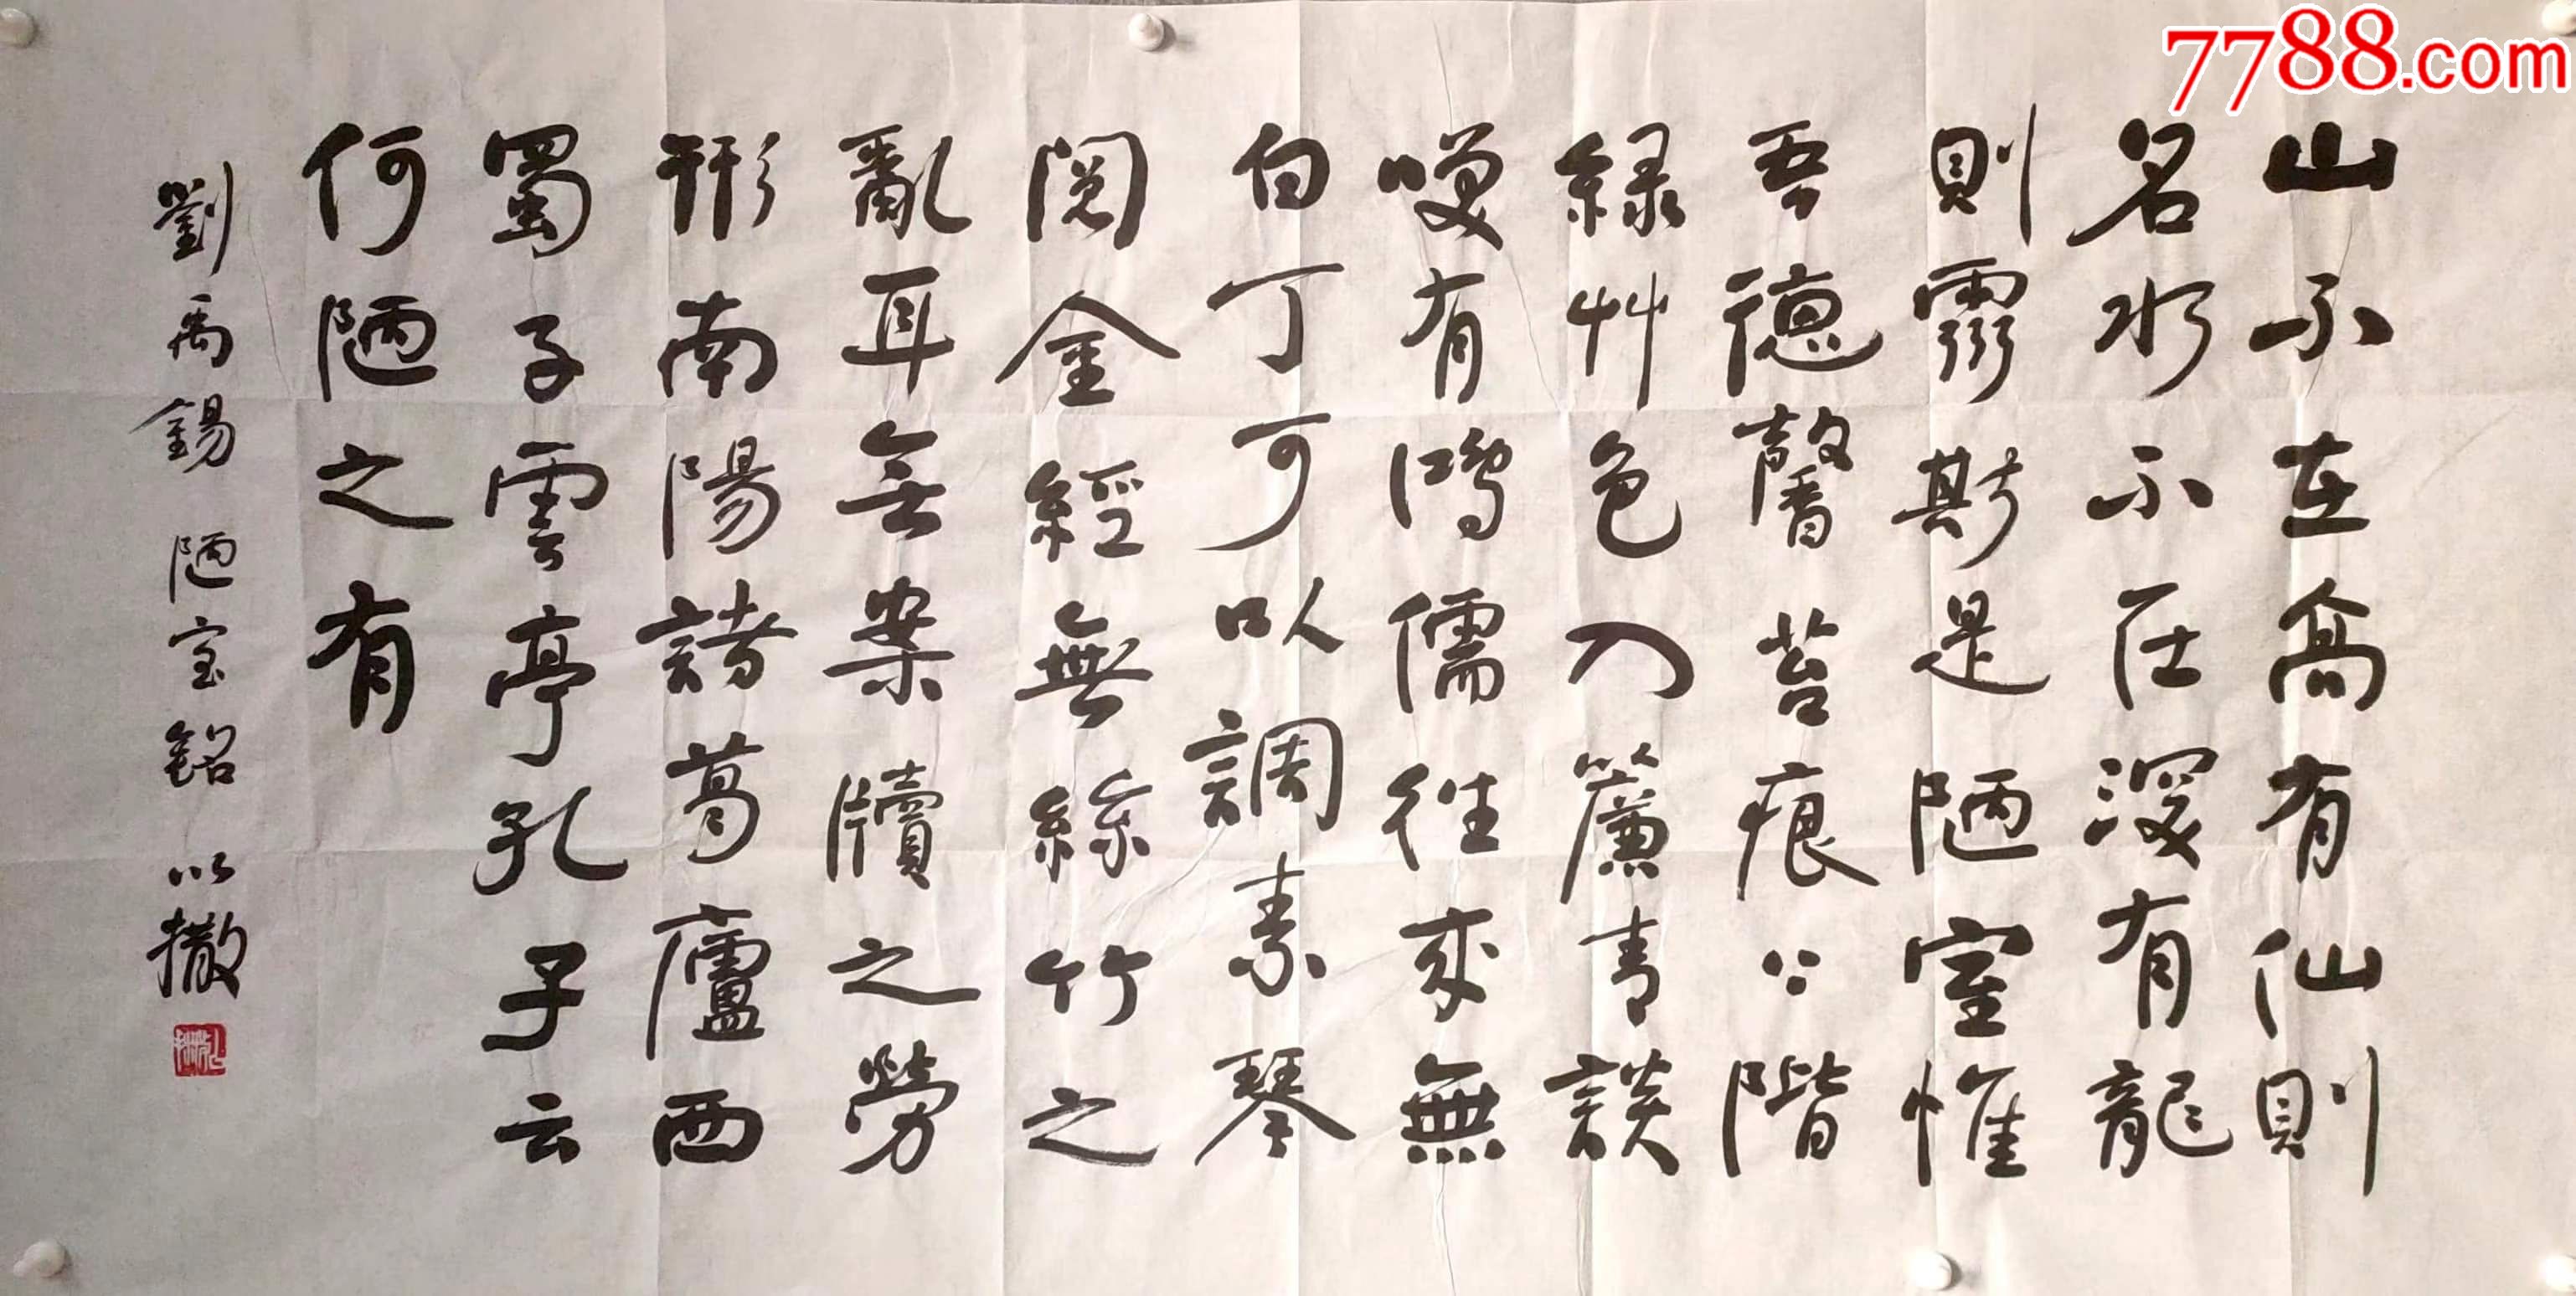 7788.com
山不在高有仙則
名水不在深有龍
則靈斯是陋室惟
吾德馨苔痕上階
緑艸色入簾青談
咲有鴻儒往來無
白丁可以調素琴
閲金經無絲竹之
亂耳無案牘之勞
形南陽諸葛廬西
蜀子雲亭孔子云
何陋之有
劉禹錫 陋室銘 以撒